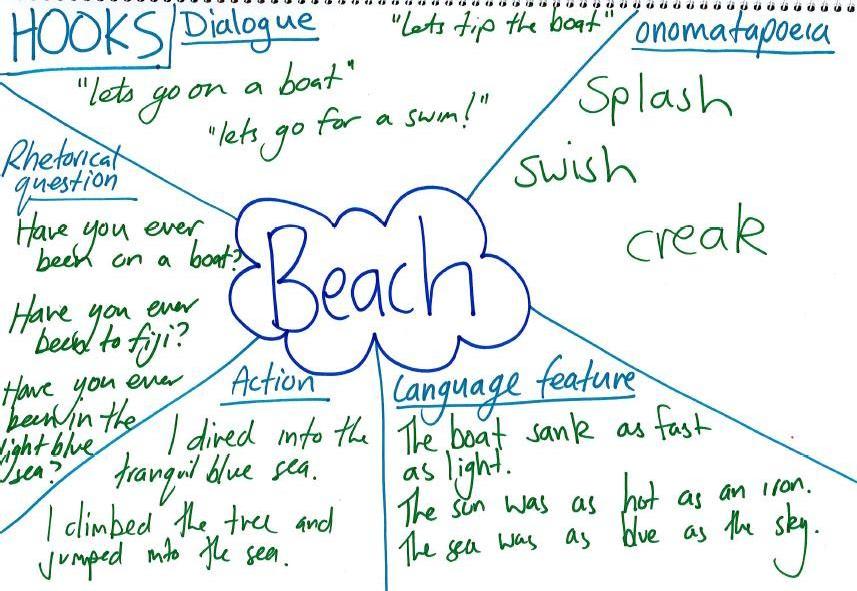 HOOKS
Dialogue
"Lets tip the boat"
"lets go on a boat"
"lets go for a swim!"
onomatapoeia
Splash
swish
creak
Rhetorical
question
Have you ever
been on a boat?
Have you ever
been to fiji?
Have you ever
been in the
light blue
sea?
Beach
Action
I dived into the
tranquil blue sea.
I climbed the tree and
jumped into the sea.
Language feature
The boat sank as fast
as light.
The sun was as hot as an iron.
The sea was as blue as the sky.